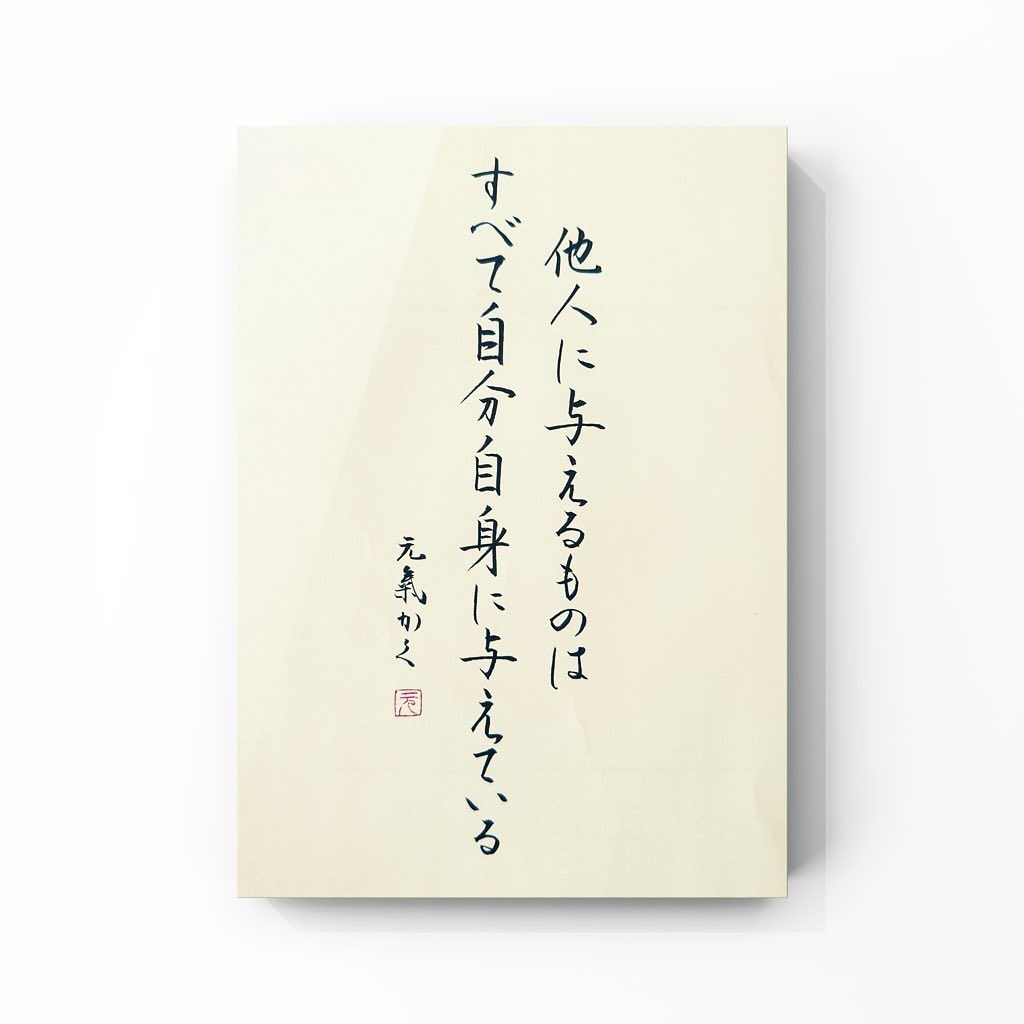 他人に与えるものは
すべて自分自身に与えている
元氣かく
元